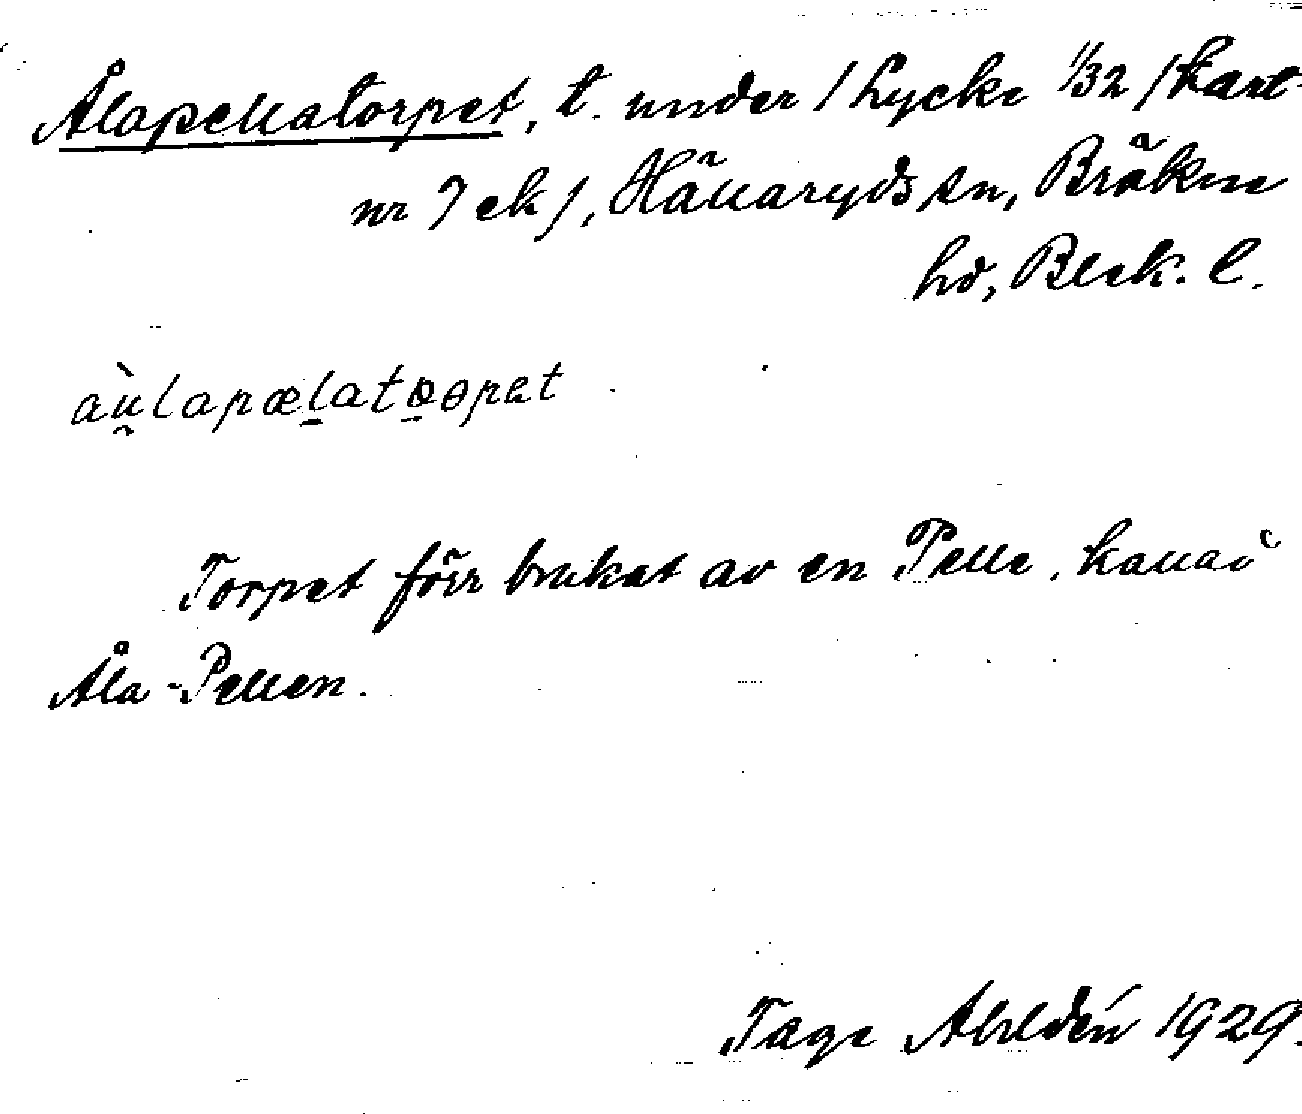 Ålapellatorpet, t. under /Lycke 1/32/ kart-
nr 7 ek/, Hällaryds sn, Bräkne
hd, Blek. l.
Torpet förr brukat av en Pelle, kallad
Åla-Pellen.
Tage Ahldén 1929.